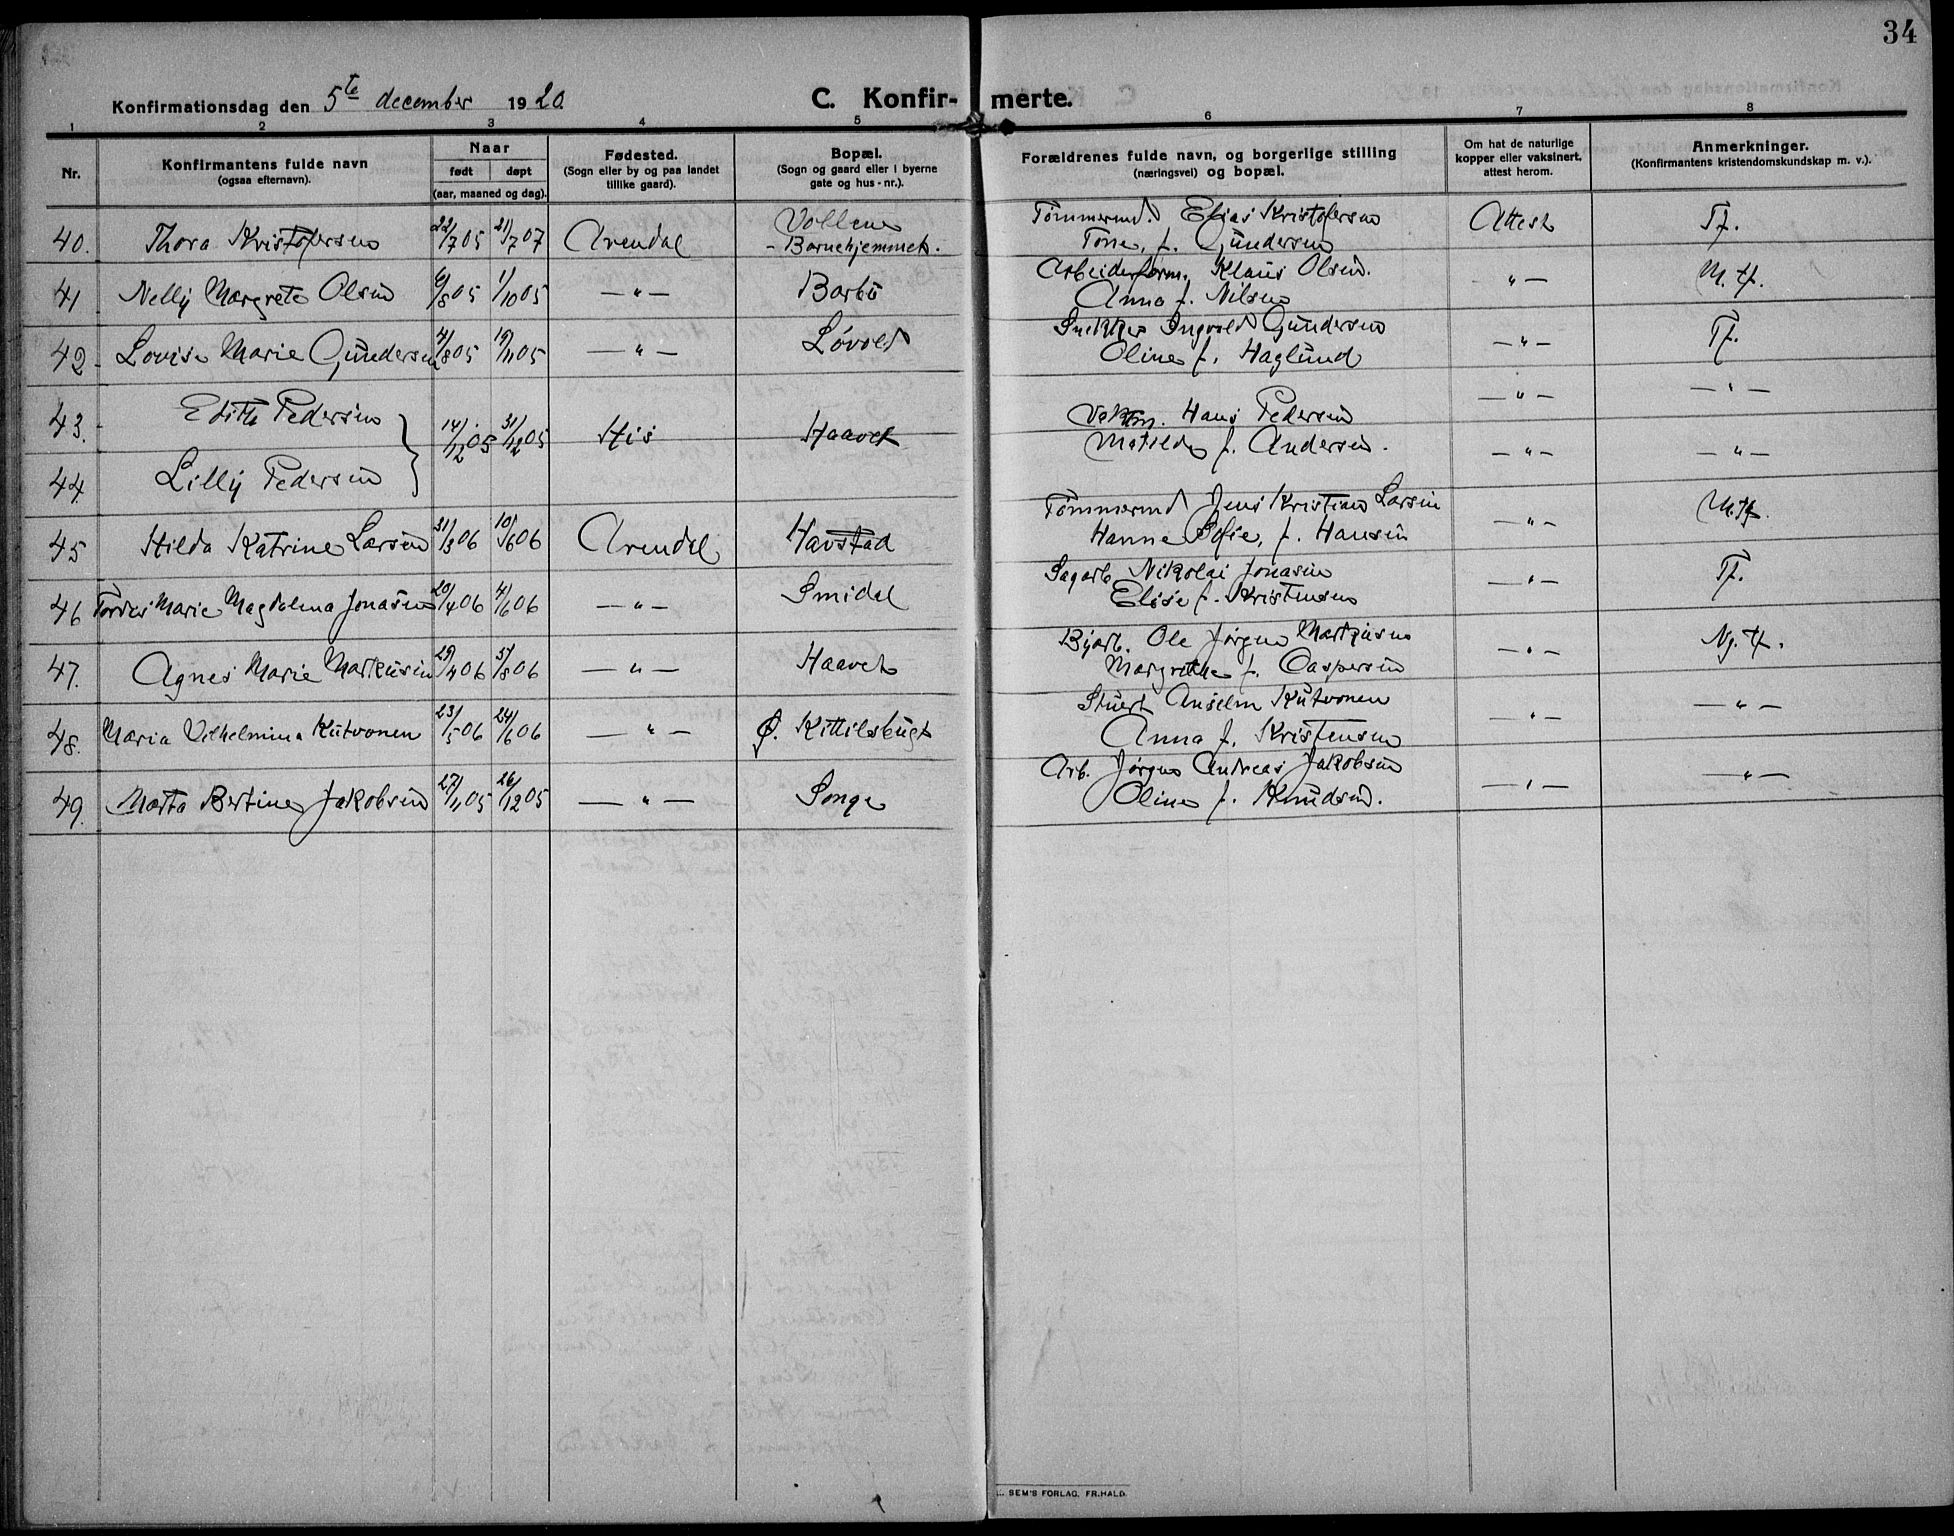 34
Konfirmationsdag den 5te december 1920.
C. Konfir- merte.
1 2 3 4 5 6 7 8
Nr.
Konfirmantens fulde navn
(ogsaa efternavn).
Naar
født døpt
(aar, maaned og dag).
Fødested.
(Sogn eller by og paa landet
tillike gaard).
Bopæl.
(Sogn og gaard eller i byerne
gate og hus-nr.).
Forældrenes fulde navn, og borgerlige stilling
(næringsvei) og bopæl.
Om hat de naturlige
kopper eller vaksinert.
attest herom.
Anmerkninger.
(Konfirmantens kristendomskundskap m. v.).
40. Thora Kristofersen 22/7 05 21/7 07 Arendal Vollene - Barnehjemmet. Tømmermd. Elias Kristofersen Attest Tf.
Tone, f. Gundersen
41 Nelly Margrete Olsen 6/8 05 1/10 05 — " — Barbo Arbeiderform. Klaus Olsen. — " — M. tf.
Anna f. Nilsen
42. Lovise Marie Gundersen 4/8 05 19/11 05 — " — Løvold Snekker Ingvold Gundersen — " — Tf.
Oline f. Haglund
43. Edith Pedersen } 14/12 05 31/12 05 His Haavet Vaktm. Hans Pedersen — " — — " —
44. Lilly Pedersen Matilde f. Andersen. — " — — " —
45 Hilda Katrine Larsen 31/3 06 10/6 06 Arendal Havstad Tømmermd Jens Kristian Larsen — " — M. tf.
Hanne Sofie, f. Hansen
46 Marie Magdalena Jonasen 20/4 06 4/6 06 — " — Smidal Sagarb. Nikolai Jonasen — " — Tf.
Elise f. Kristensen
47. Agnes Marie Markusen 29/4 06 /8 06 — " — Haavet Byarb. Ole Jørgen Markusen — " — Ng. tf.
Margrethe f. Caspersen
48. Maria Vilhelmina Kutvonen 23/5 06 24/6 06 — " — Ø. Kittilsbugt Stuert Anselm Kutvonen — " — — " —
Anna f. Kristensen
49. Marta Bertine Jakobsen 27/11 05 26/12 05 — " — Songe Arb. Jørgen Andreas Jakobsen — " — — " —
Oline f. Knudsen.
SEM'S FORLAG, FR.HALD.